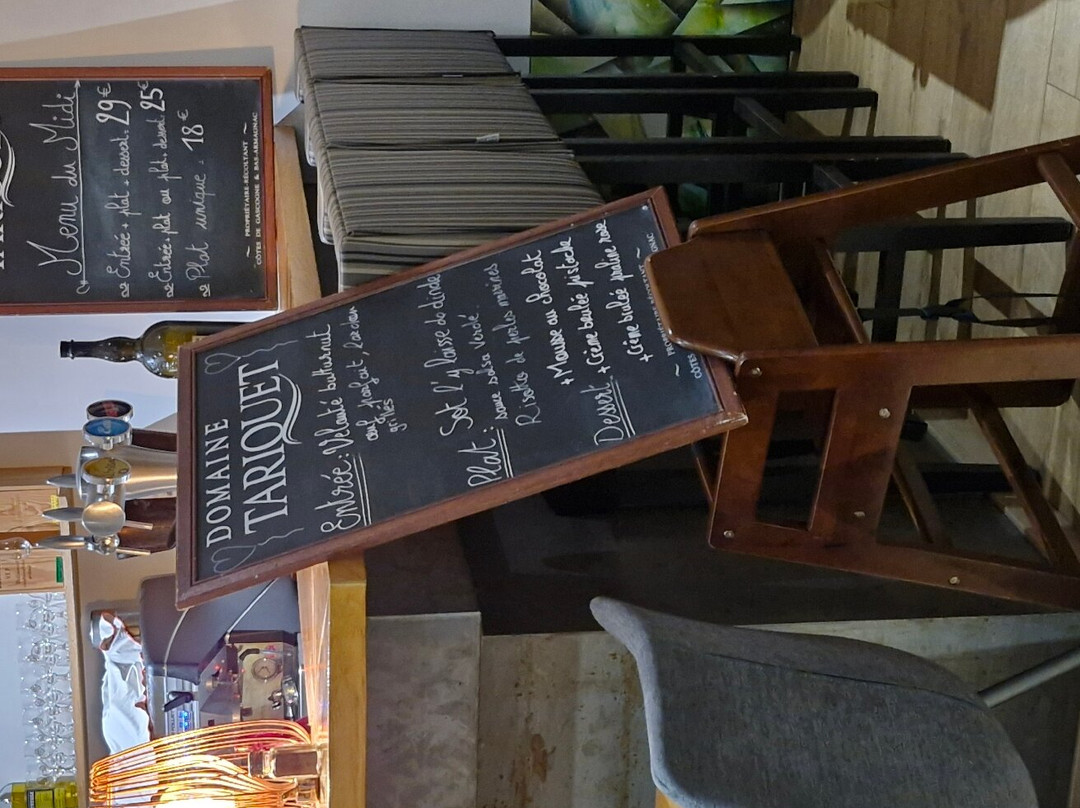 Menu du Midi
Entrée + plat + dessert. 29€
Entrée + plat ou plat, dessert. 25€
Plat unique. 18€
~ PROPRIÉTAIRE-RÉCOLTANT ~
CÔTES DE GASCOGNE & BAS-ARMAGNAC
DOMAINE
TARIQUET
Entrée : Velouté butturnut
œuf parfait, lardon
grillés
Plat : Sot l'y laisse de dinde
sauce salsa verdé
Risotto de perles marines
Dessert + Mousse au chocolat
+ Crème brulée pistache
+ Crème brulée praline rose
~
CÔTES